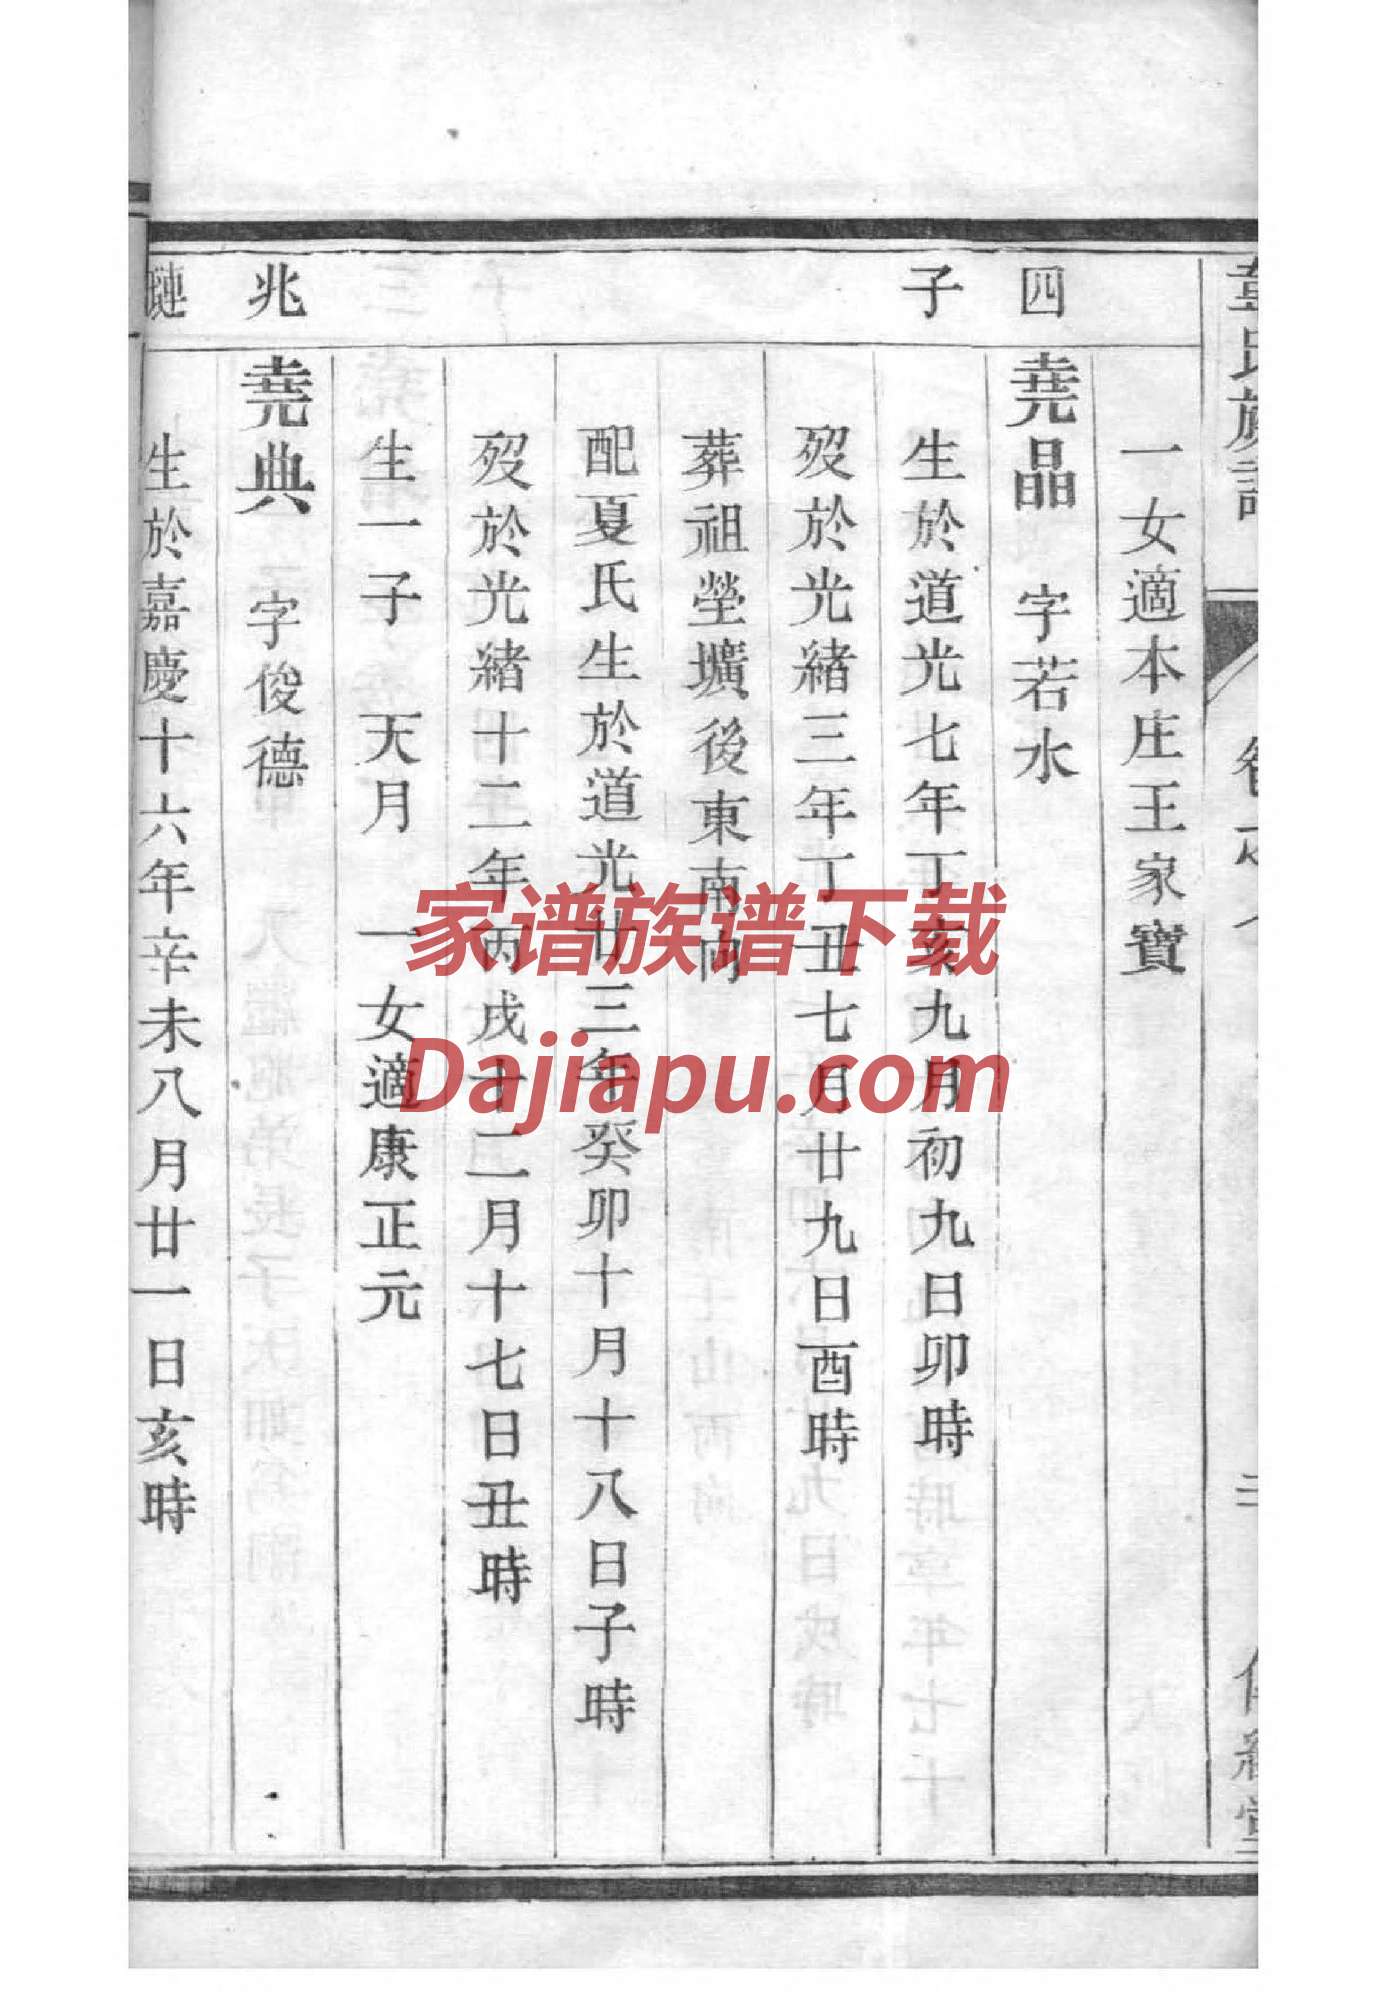 氏族
一女適本庄王家寶
四
堯晶 字若水
子
生於道光七年丁亥九月初九日卯時
歿於光緒三年丁丑七月廿九日酉時
葬祖塋壙後東南向
配夏氏生於道光廿三年癸卯十月十八日子時
歿於光緒十二年丙戌十二月十七日丑時
生一子 天月 一女適康正元
兆
堯典 字俊德
生於嘉慶十六年辛未八月廿一日亥時
家谱族谱下载
Dajiapu.com